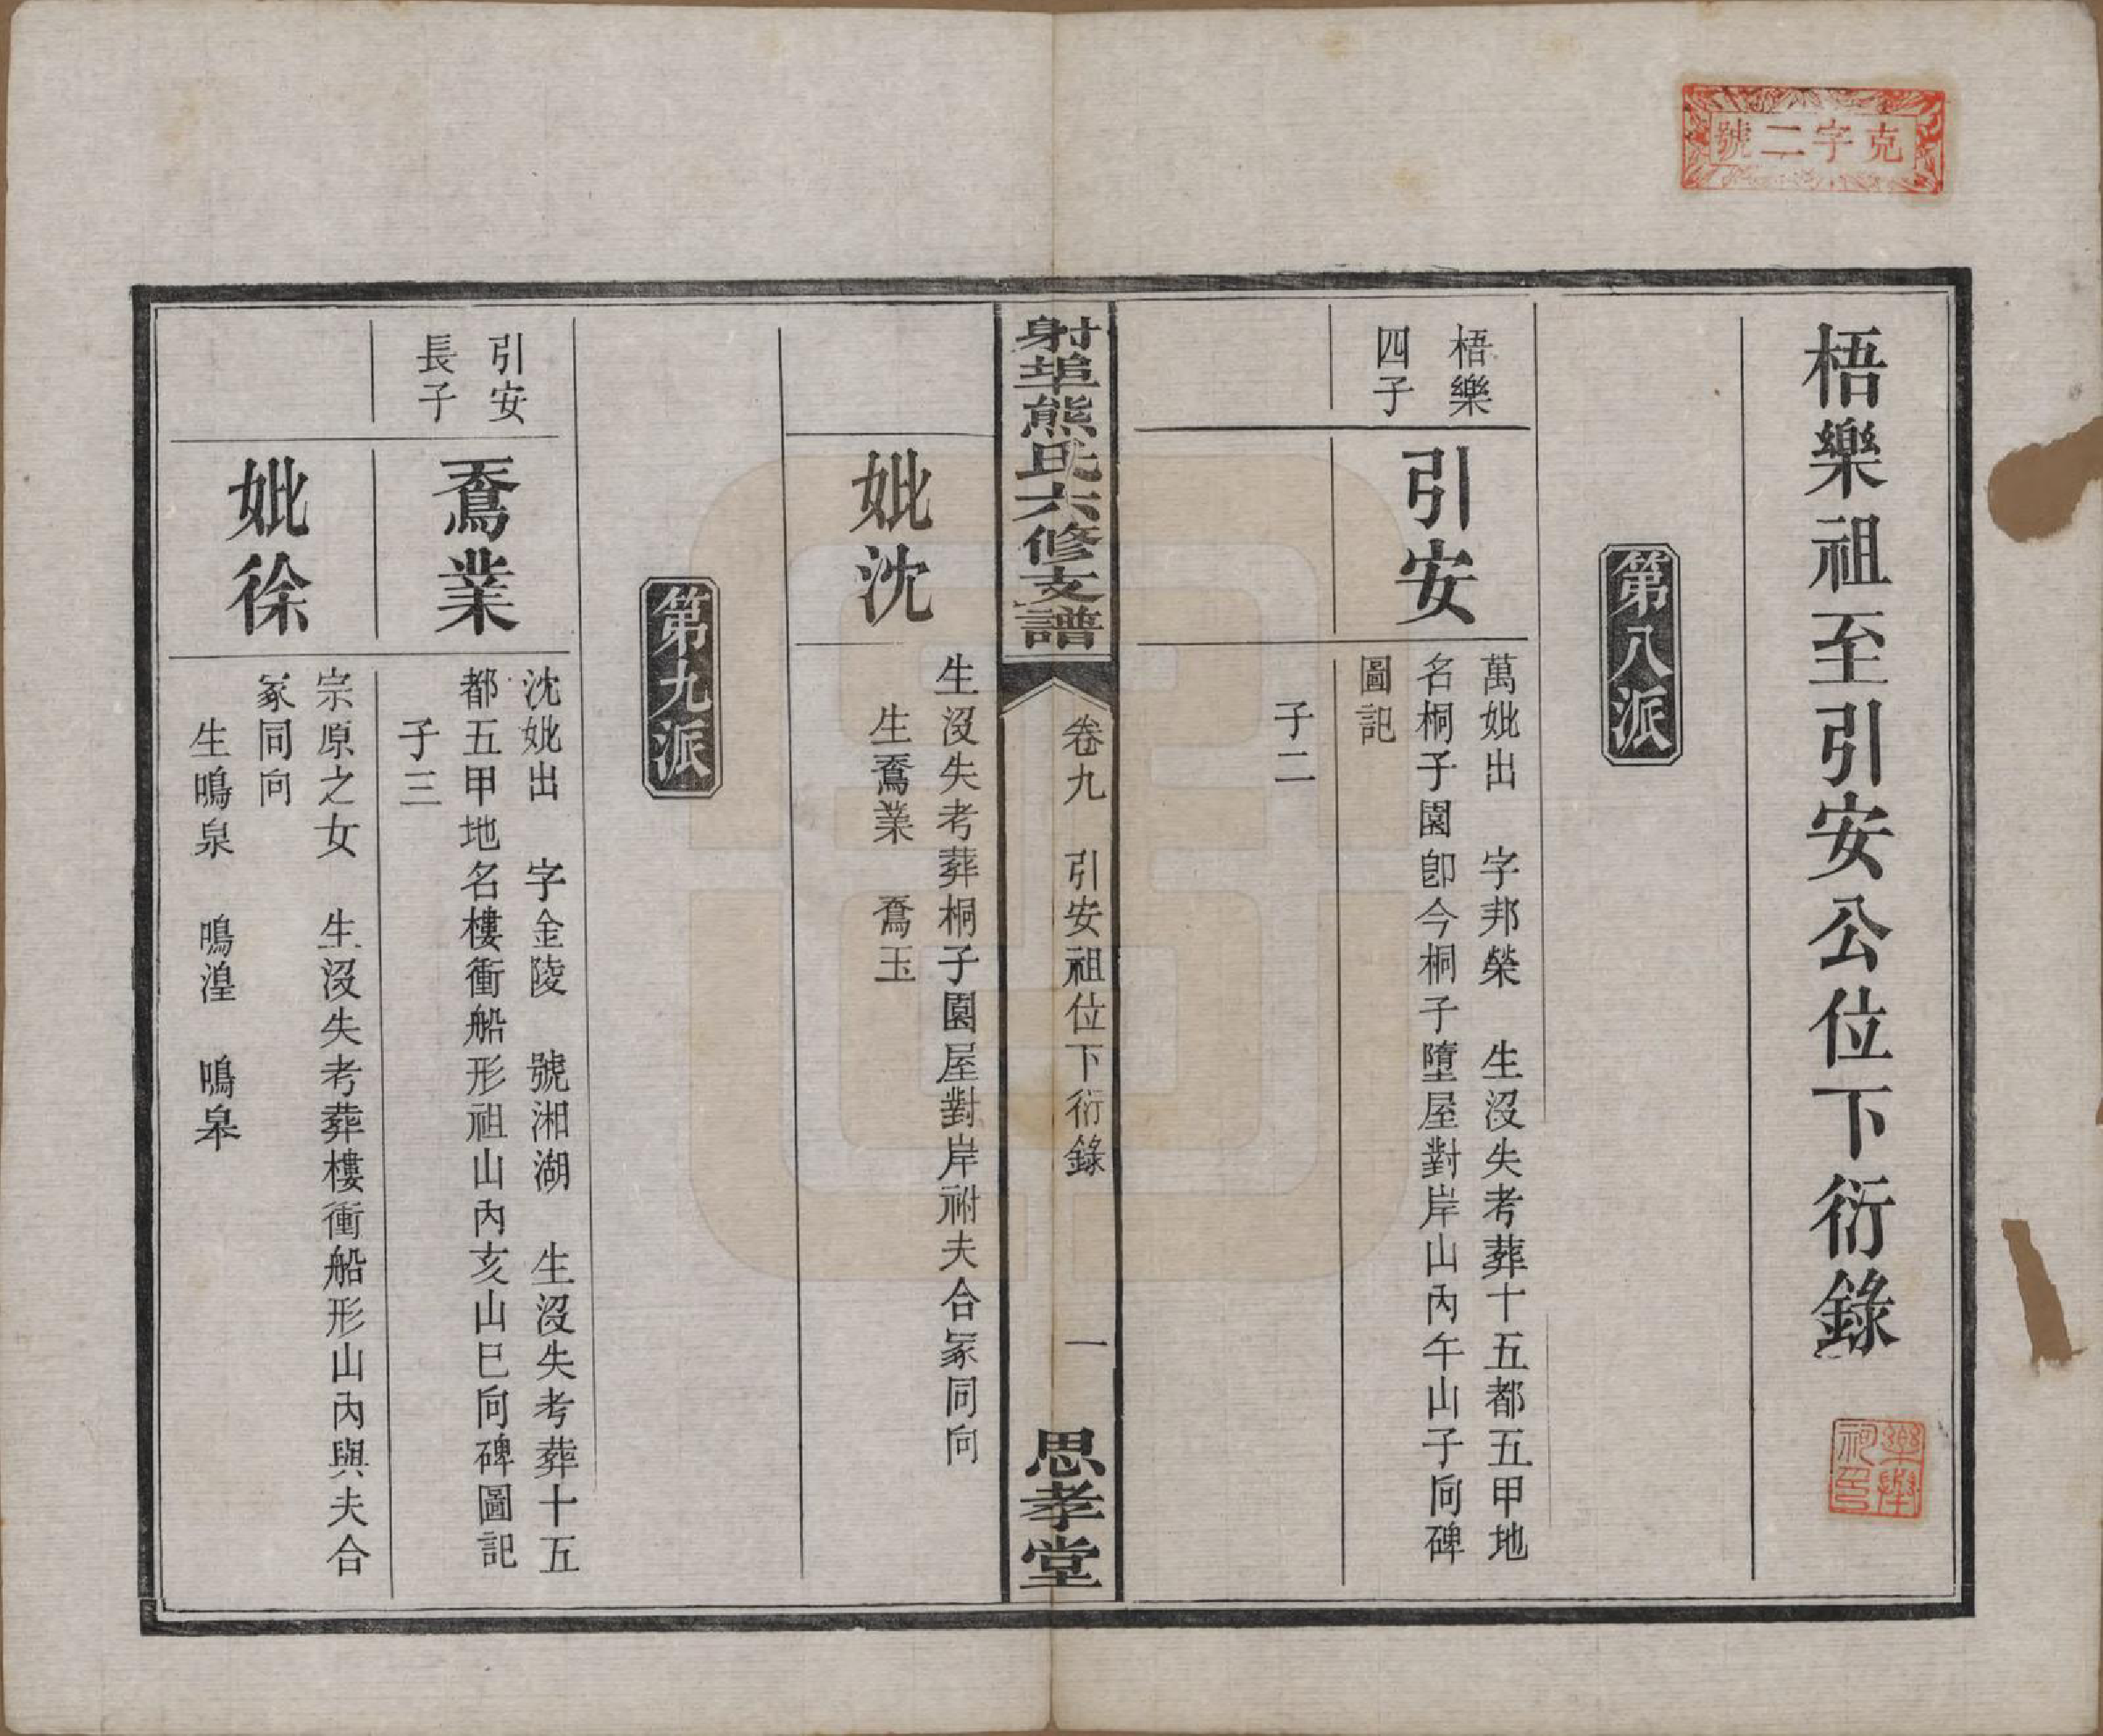 克字二號
梧樂祖至引安公位下衍錄
第八派
梧樂
四子
引安
萬妣出　字邦榮　生沒失考葬十五都五甲地
名桐子園卽今桐子墮屋對岸山內午山子向碑
圖記
子二
射埠熊氏六修支譜
卷九　引安祖位下衍錄　一
思孝堂
妣沈
生沒失考葬桐子園屋對岸祔夫合冢同向
生鴌業　鴌玉
第九派
引安
長子
鴌業
沈妣出　字金陵　號湘湖　生沒失考葬十五
都五甲地名樓衝船形祖山內亥山巳向碑圖記
子三
妣徐
宗原之女　生沒失考葬樓衝船形山內與夫合
冢同向
生鳴泉　鳴湟　鳴皋